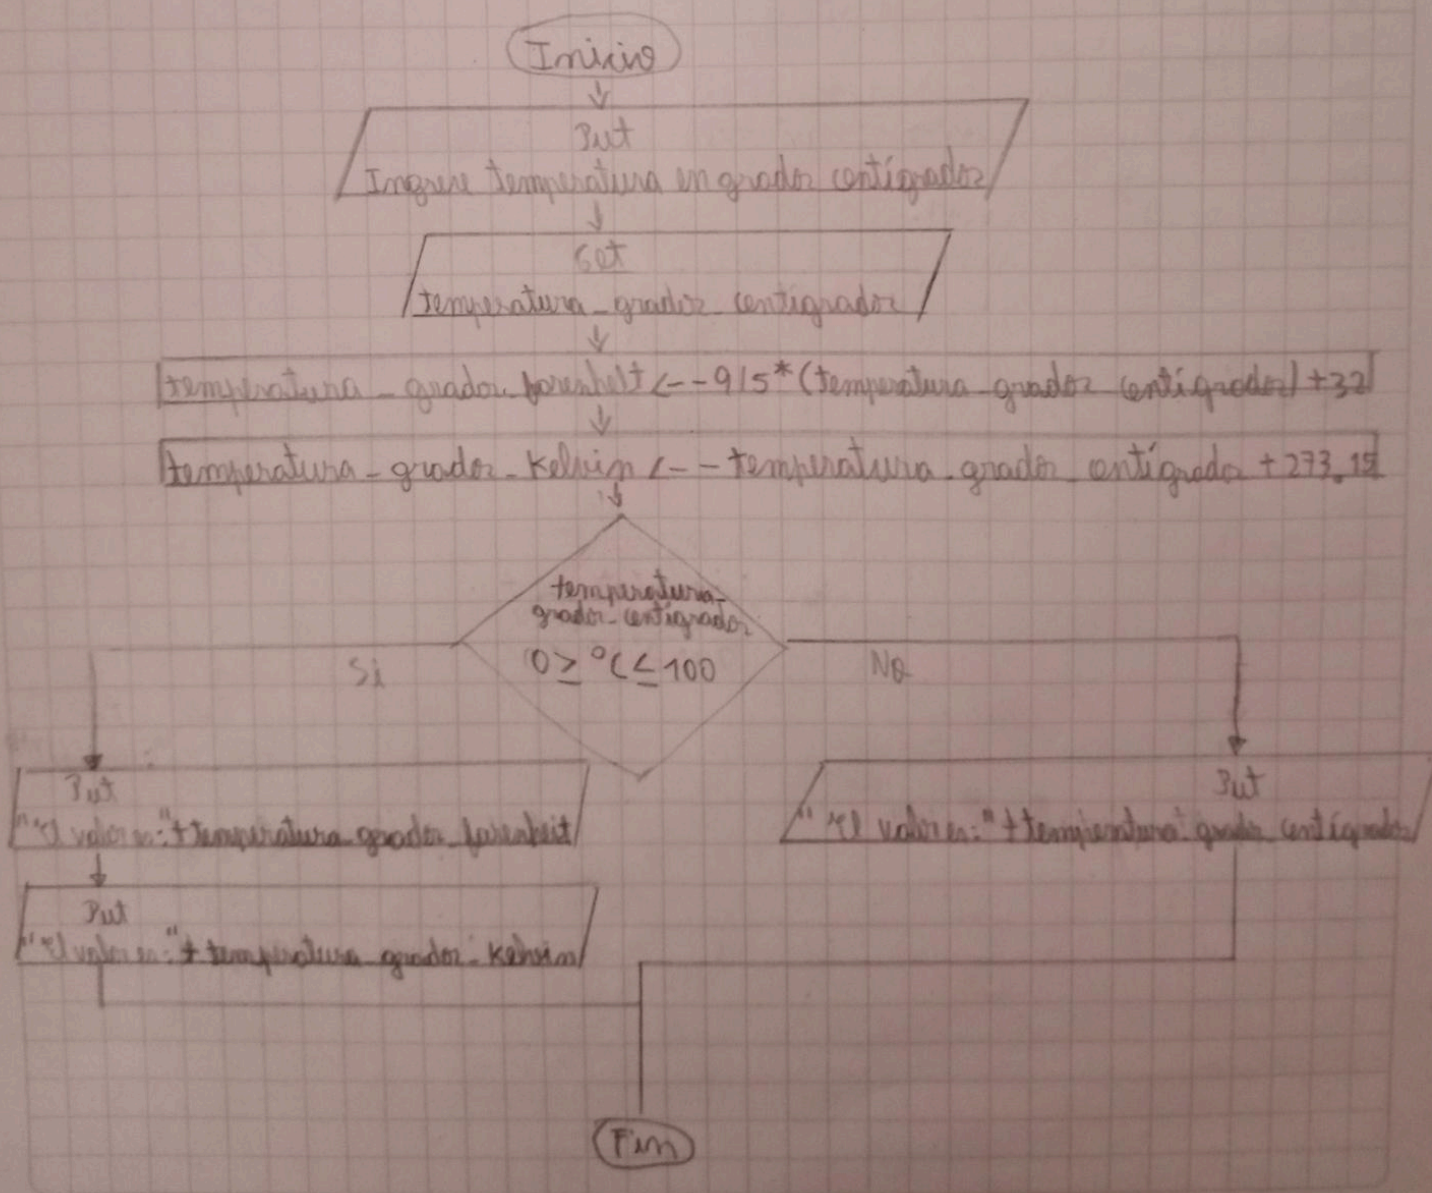 Inicio
Put
Ingrese temperatura en grados centígrados
Get
temperatura_grados_centigrados
temperatura_grados_farenheit <-- 9/5*(temperatura_grados centígrados)+32
temperatura_grados_Kelvin <-- temperatura_grados_centígrados +273.15
temperatura_
grados_centígrados
0≥ °C ≤ 100
Si
No
Put
"El valor es:"+temperatura_grados_farenheit
Put
"El valor es:"+temperatura_grados_centígrados
Put
"El valor es:"+ temperatura_grados_Kelvin
Fin